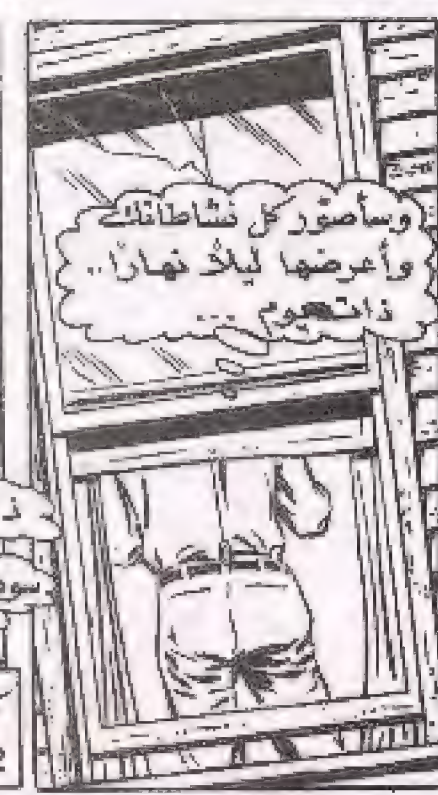 وسأصوّر كل نشاطاتك
وأعرضها ليلاً نهاراً..
ذات يوم ...